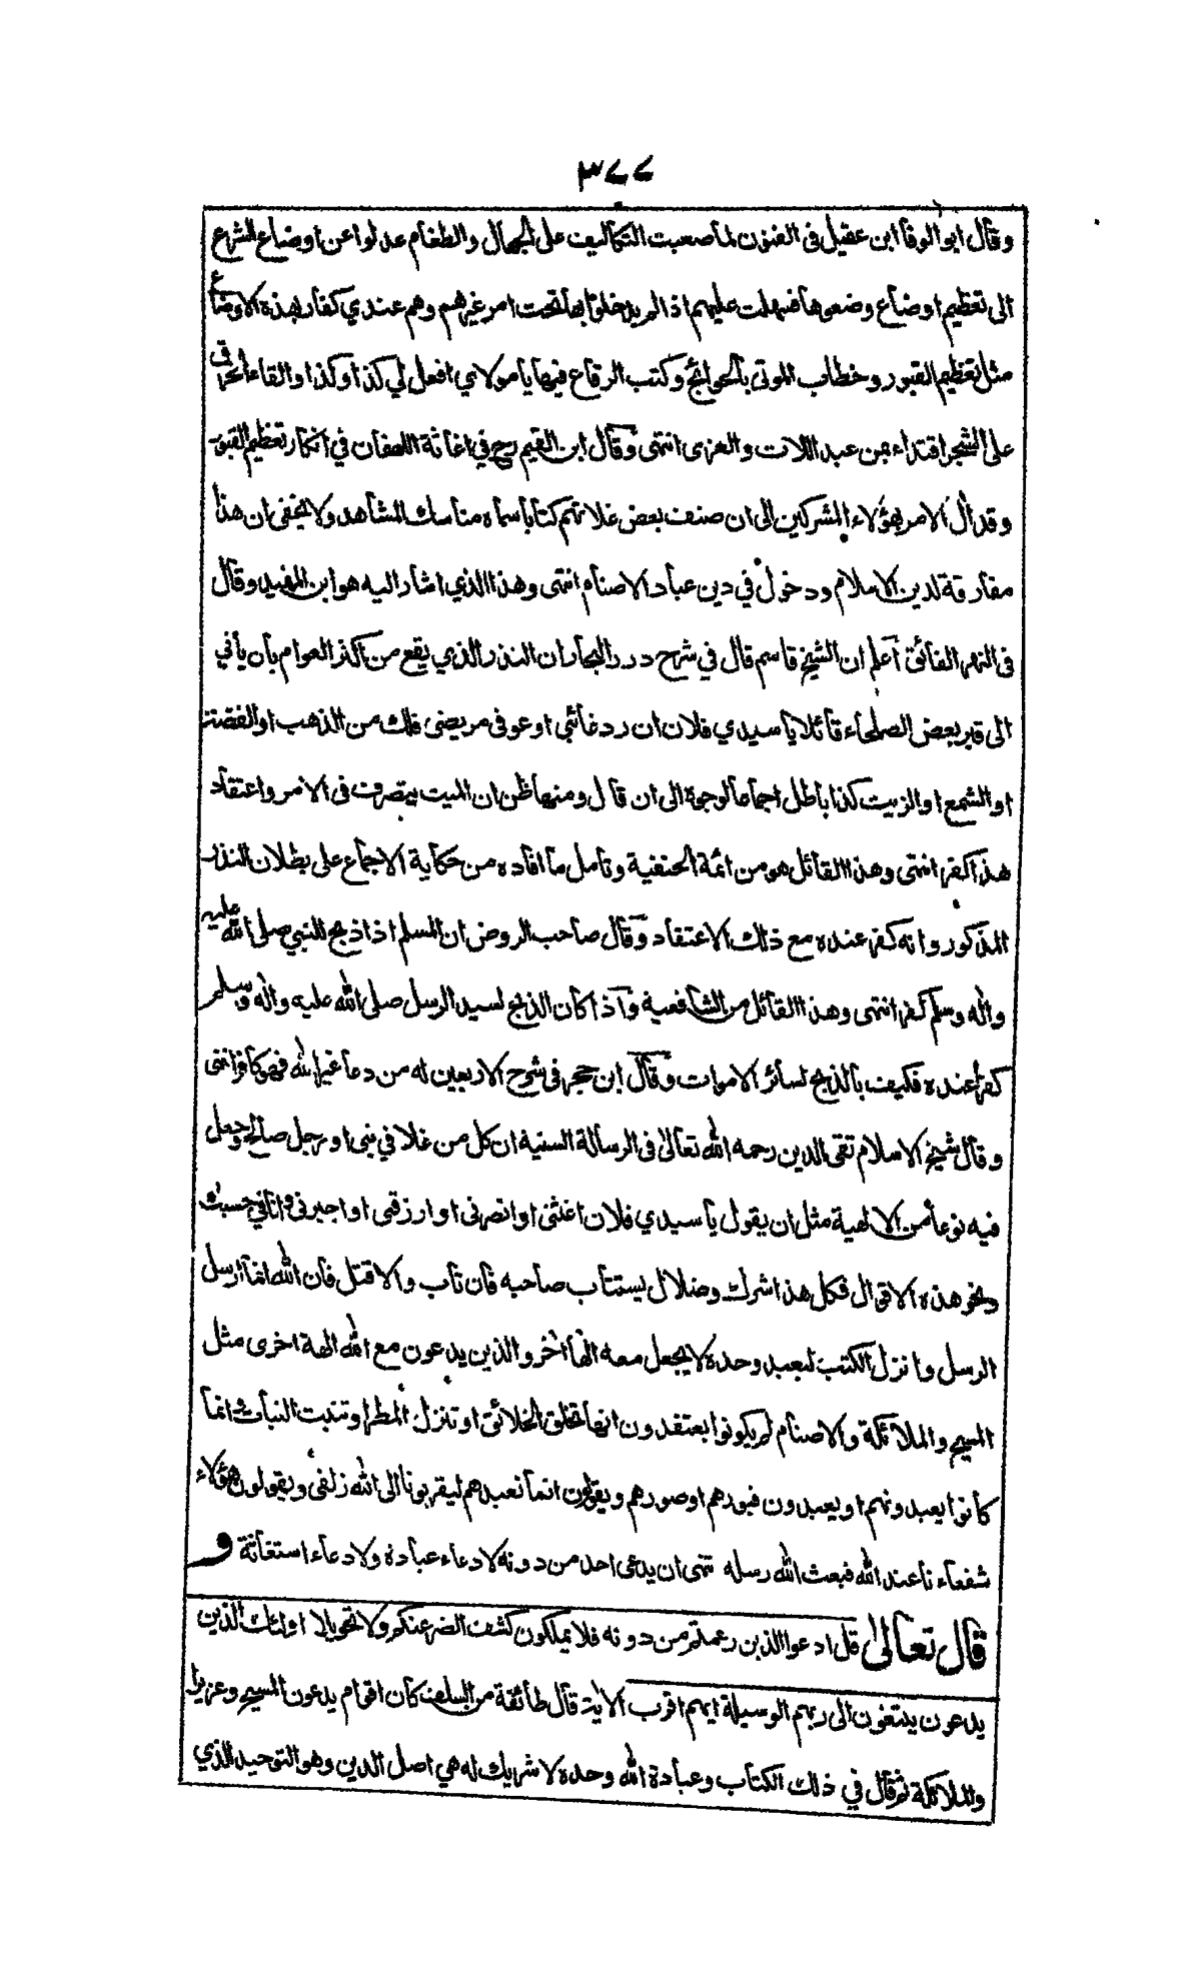 ٣٧٧
وقال ابو الوفا ابن عقيل فى الفنون لما صعبت التكاليف على الجهال والطغام عدلوا عن اوضاع الشرع
الى تعظيم اوضاع وضعوها فسهلت عليهم اذ لم يدخلوا بها تحت امر غيرهم وهم عندي كفار بهذه الاوضاع
مثل تعظيم القبور وخطاب الموتى بالحوائج وكتب الرقاع فيها يا مولاي افعل لي كذا وكذا والقاء الخرق
على الشجر اقتداء بمن عبد اللات والعزى انتهى وقال ابن القيم رح في اغاثة اللهفان في انكار تعظيم القبور
وقد آل الامر بهؤلاء المشركين الى ان صنف بعض غلاتهم كتابا سماه مناسك المشاهد ولا يخفى ان هذا
مفارقة لدين الاسلام ودخول في دين عباد الاصنام انتهى وهذا الذي اشار اليه هو ابن المفيد وقال
فى النهر الفائق اعلم ان الشيخ قاسم قال في شرح درر البحار ان النذر الذي يقع من اكثر العوام بان يأتي
الى قبر بعض الصلحاء قائلا يا سيدي فلان ان رد غائبي او عوفى مريضى فلك من الذهب او الفضة
او الشمع او الزيت كذا باطل اجماعا لوجوه الى ان قال ومنها ظن ان الميت يتصرف فى الامر واعتقاد
هذا كفر انتهى وهذا القائل هو من ائمة الحنفية وتأمل ما افاده من حكاية الاجماع على بطلان النذر
المذكور وانه كفر عنده مع ذلك الاعتقاد وقال صاحب الروض ان المسلم اذا ذبح للنبي صلى الله عليه
واله وسلم كفر انتهى وهذا القائل من الشافعية واذا كان الذبح لسيد الرسل صلى الله عليه واله وسلم
كفرا عنده فكيف بالذبح لسائر الاموات وقال ابن حجر فى شرح الاربعين له من دعا غير الله فهو كافر انتهى
وقال شيخ الاسلام تقى الدين رحمه الله تعالى فى الرسالة السنية ان كل من غلا في نبى او رجل صالح وجعل
فيه نوعا من الالهية مثل ان يقول يا سيدي فلان اغثنى او انصرنى او ارزقنى او اجبرنى وانا في حسبك
ونحو هذه الاقوال فكل هذا شرك وضلال يستتاب صاحبه فان تاب والا قتل فان الله انما ارسل
الرسل وانزل الكتب ليعبد وحده لا يجعل معه الها اخر والذين يدعون مع الله الهة اخرى مثل
المسيح والملائكة والاصنام لم يكونوا يعتقدون انها تخلق الخلائق او تنزل المطر او تنبت النبات وانما
كانوا يعبدونهم او يعبدون قبورهم او صورهم ويقولون انما نعبدهم ليقربونا الى الله زلفى ويقولون هؤلاء
شفعاءنا عند الله فبعث الله رسله تنهى ان يدعى احد من دونه لا دعاء عبادة ولا دعاء استغاثة و
قال تعالى قل ادعوا الذين زعمتم من دونه فلا يملكون كشف الضر عنكم ولا تحويلا اولئك الذين
يدعون يبتغون الى ربهم الوسيلة ايهم اقرب الاية قال طائفة من السلف كان اقوام يدعون المسيح وعزيرا
والملائكة ثم قال في ذلك الكتاب وعبادة الله وحده لا شريك له هي اصل الدين وهو التوحيد الذي